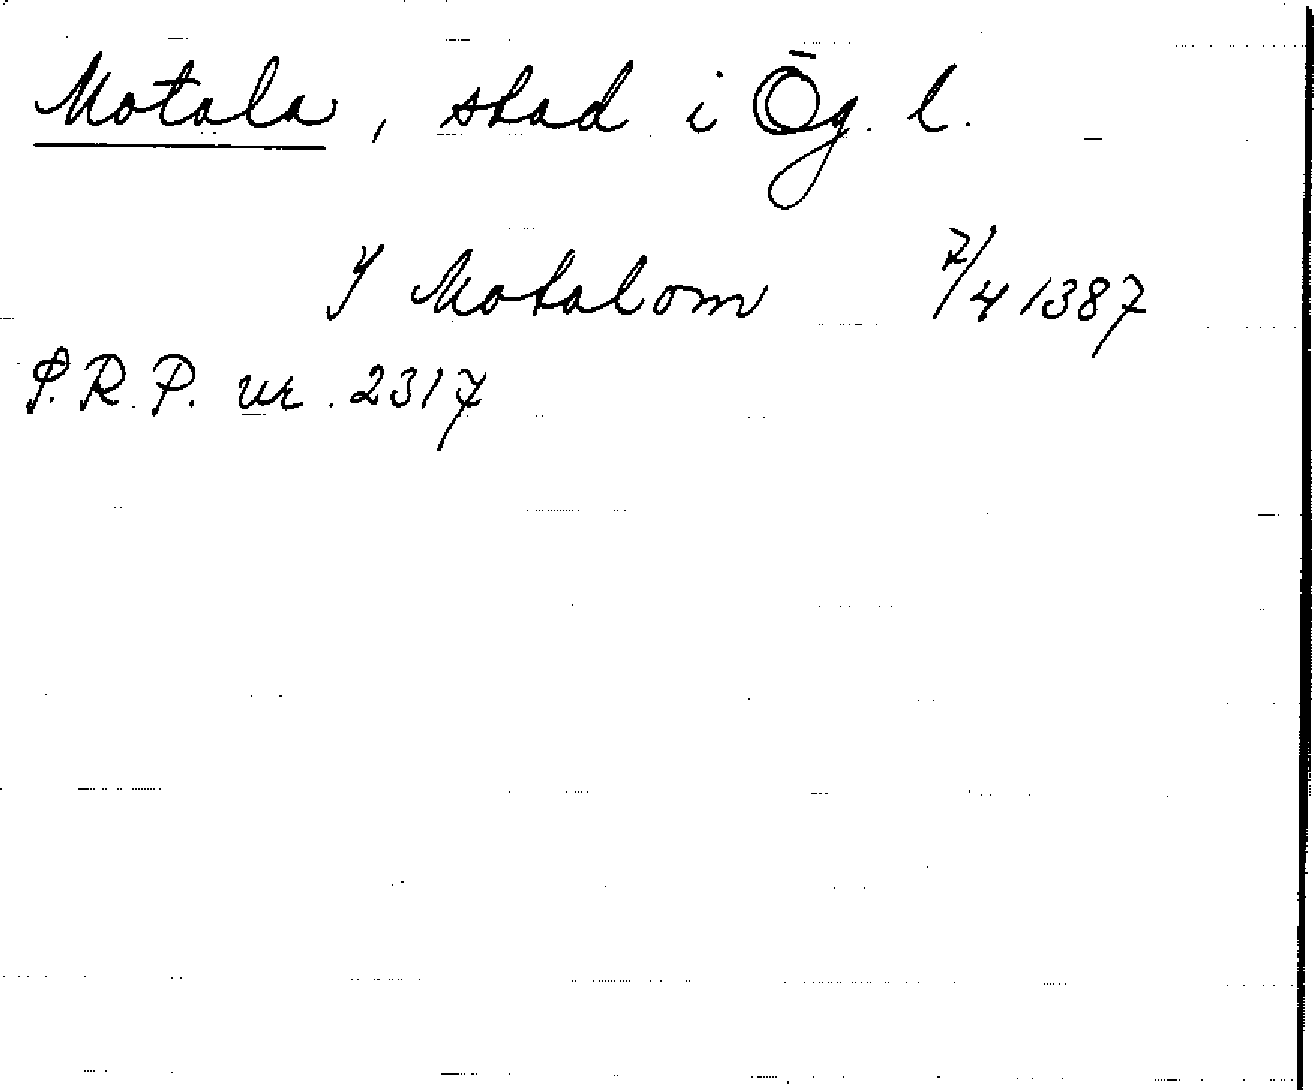 Motala, stad i Ög. l.
J Motalom 7/4 1387
S.R.P. nr. 2317